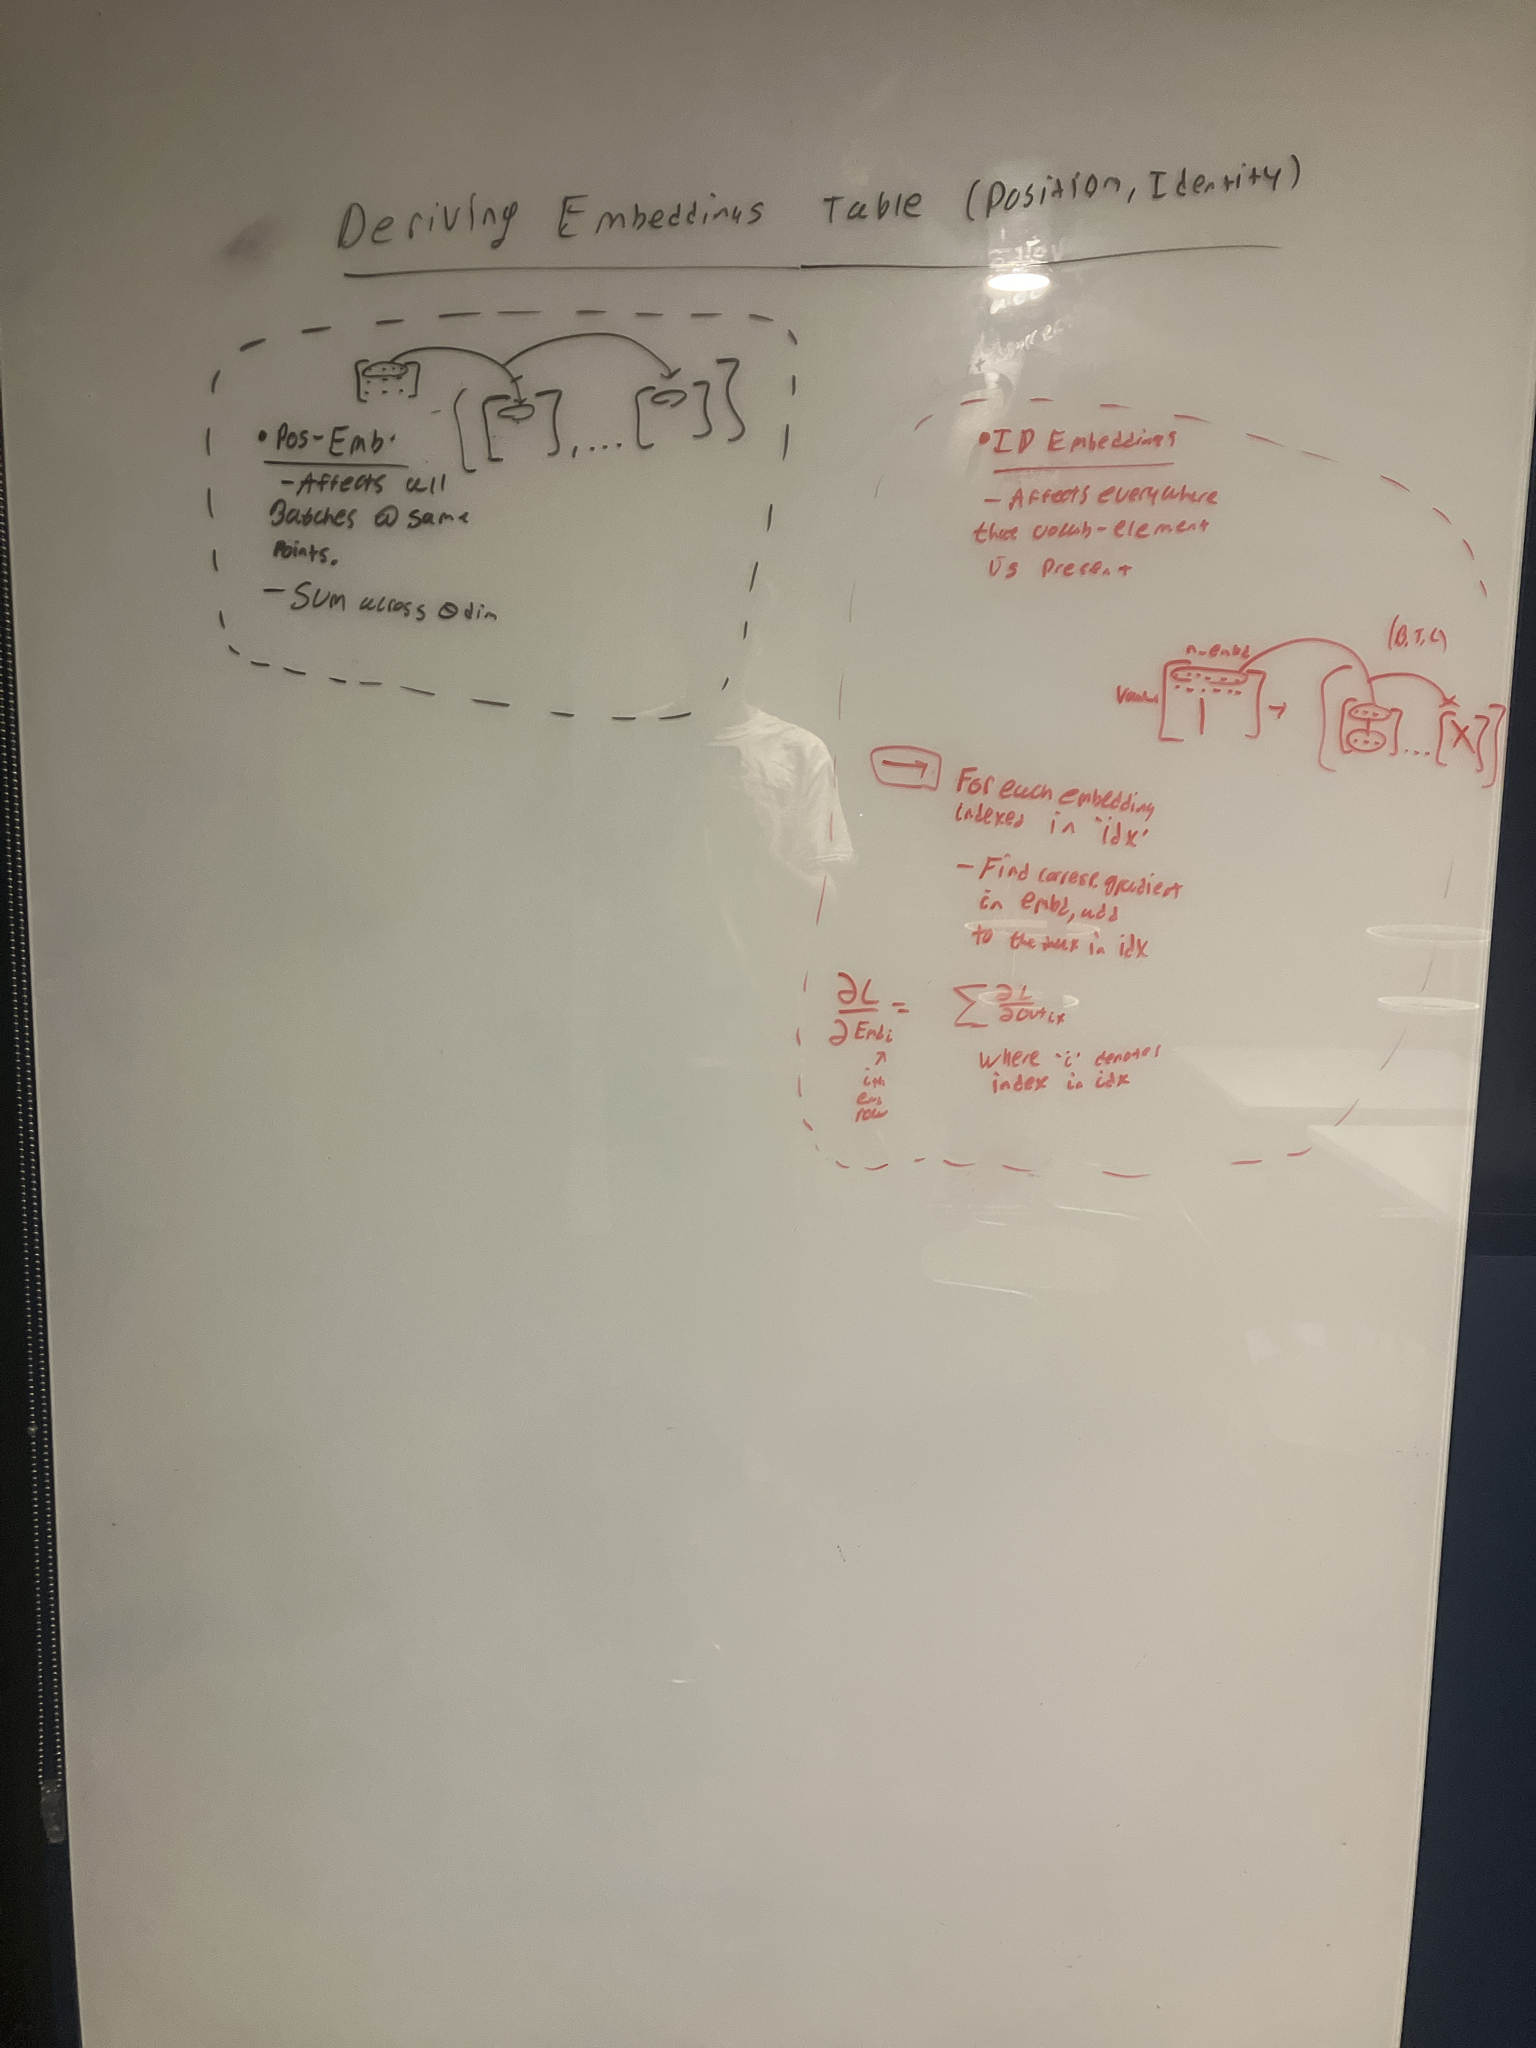 Deriving Embeddings Table (Position, Identity)
• Pos-Emb.
- Affects all
Batches @ same
Points.
- Sum across dim
• ID Embeddings
- Affects everywhere
that vocab-element
is Present
n_embd
(B,T,C)
Vocab
→ For each embedding
indexed in 'idx'
- Find corresp. gradient
in embd, add
to the index in idx
∂L/∂Emb_i = Σ ∂L/∂out_ix
where 'i' denotes
index in idx
ith
emb
row